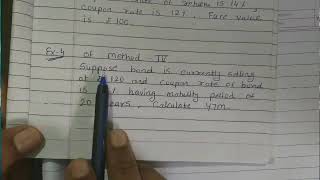 coupon rate is 12%, Face value
is ₹100.
Ex-4 of method - IV
Suppose bond is currently selling
at 120 and coupon rate of bond
is % having maturity period of
20 years, Calculate YTM.